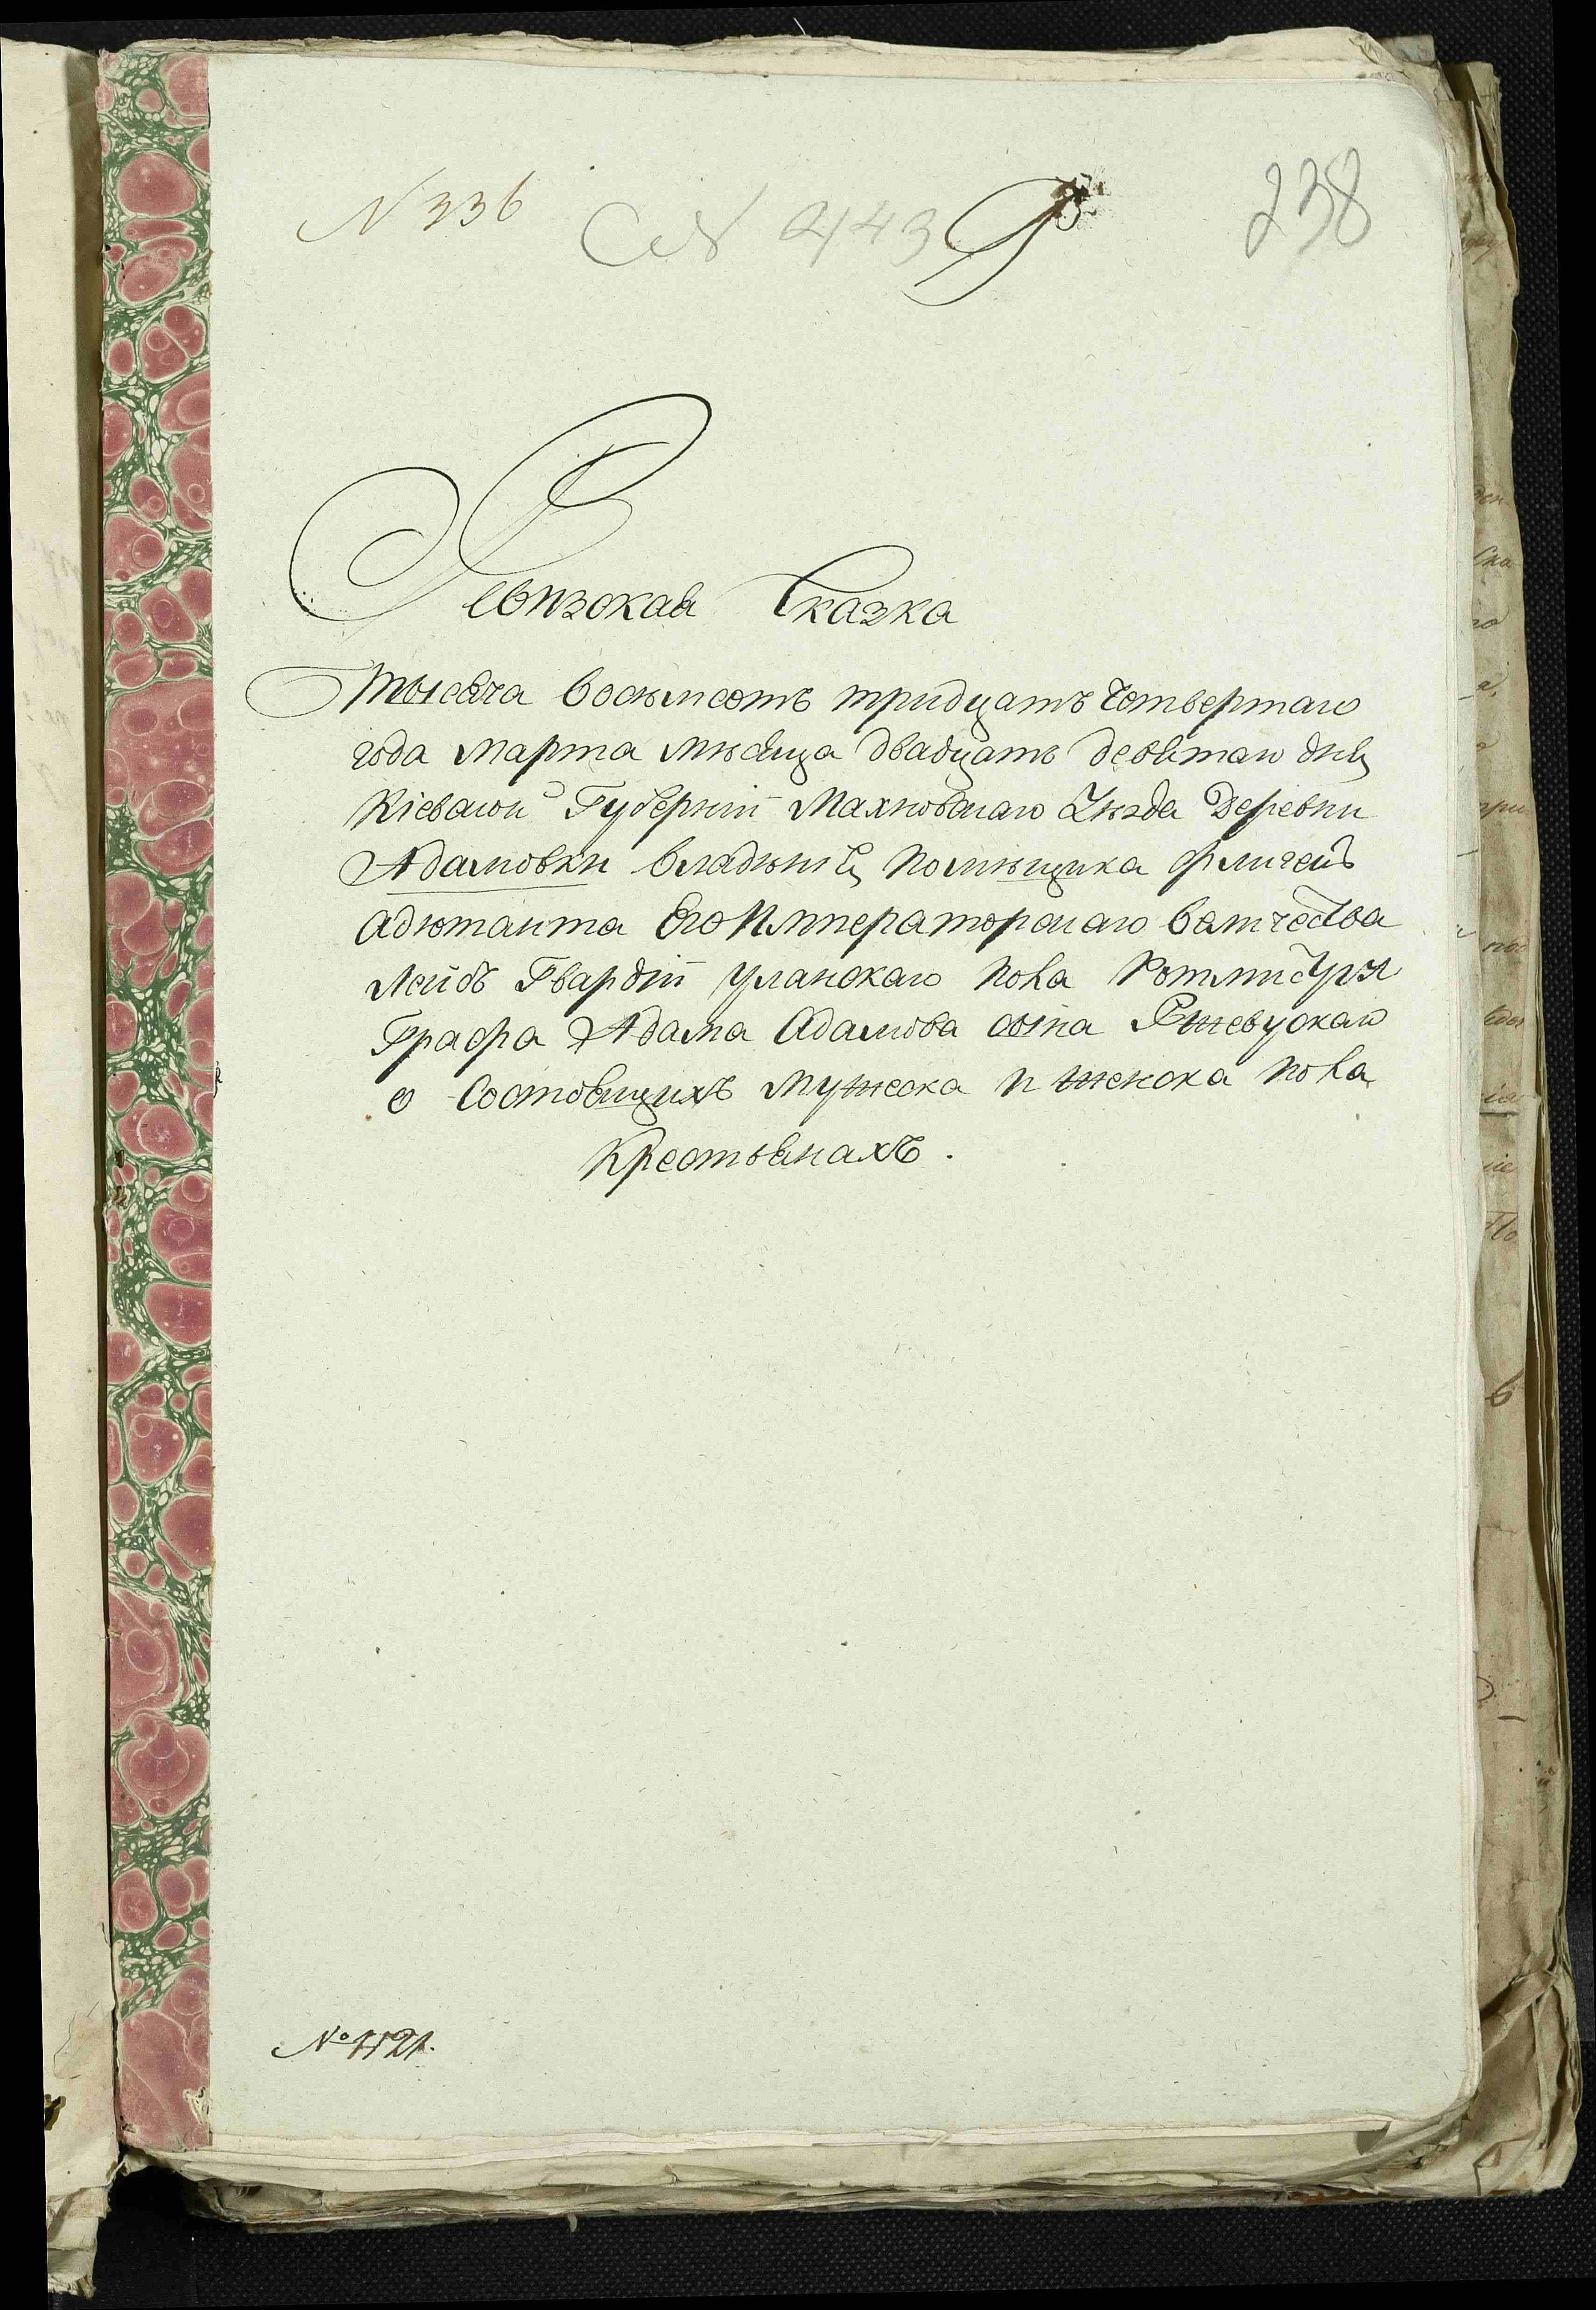 N 336 N 443 238
Ревизская Сказка
Тысяча восьмсотъ тридцатъ Четвертаго
года Марта мѣсяца двадцатъ девятаго дня
Кіевской Губерніи Махновскаго Уѣзда Деревни
Адамовки владѣнія Помѣщика флигель
Адютанта Его Императорскаго величества
Лейбъ Гвардіи Уланскаго Полка Ротмистра
Графа Адама Адамова сына Ржевускаго
о Состоящихъ мужеска и женска пола
Крестьянахъ.
№ 1121.